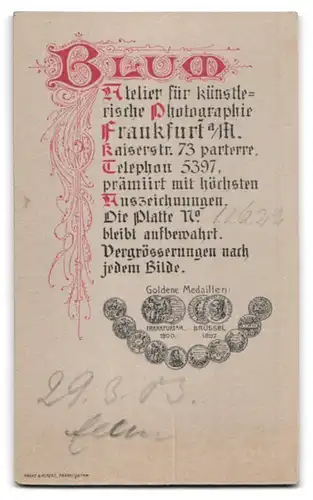 BLUM
Atelier für künstle=
rische Photographie
Frankfurt a/M.
Kaiserstr. 73 parterre.
Telephon 5397.
prämiirt mit höchsten
Auszeichnungen.
Die Platte No
bleibt aufbewahrt.
Vergrösserungen nach
jedem Bilde.
Goldene Medaillen:
FRANKFURT A/M. BRÜSSEL
1900. 1897
29.3.03.